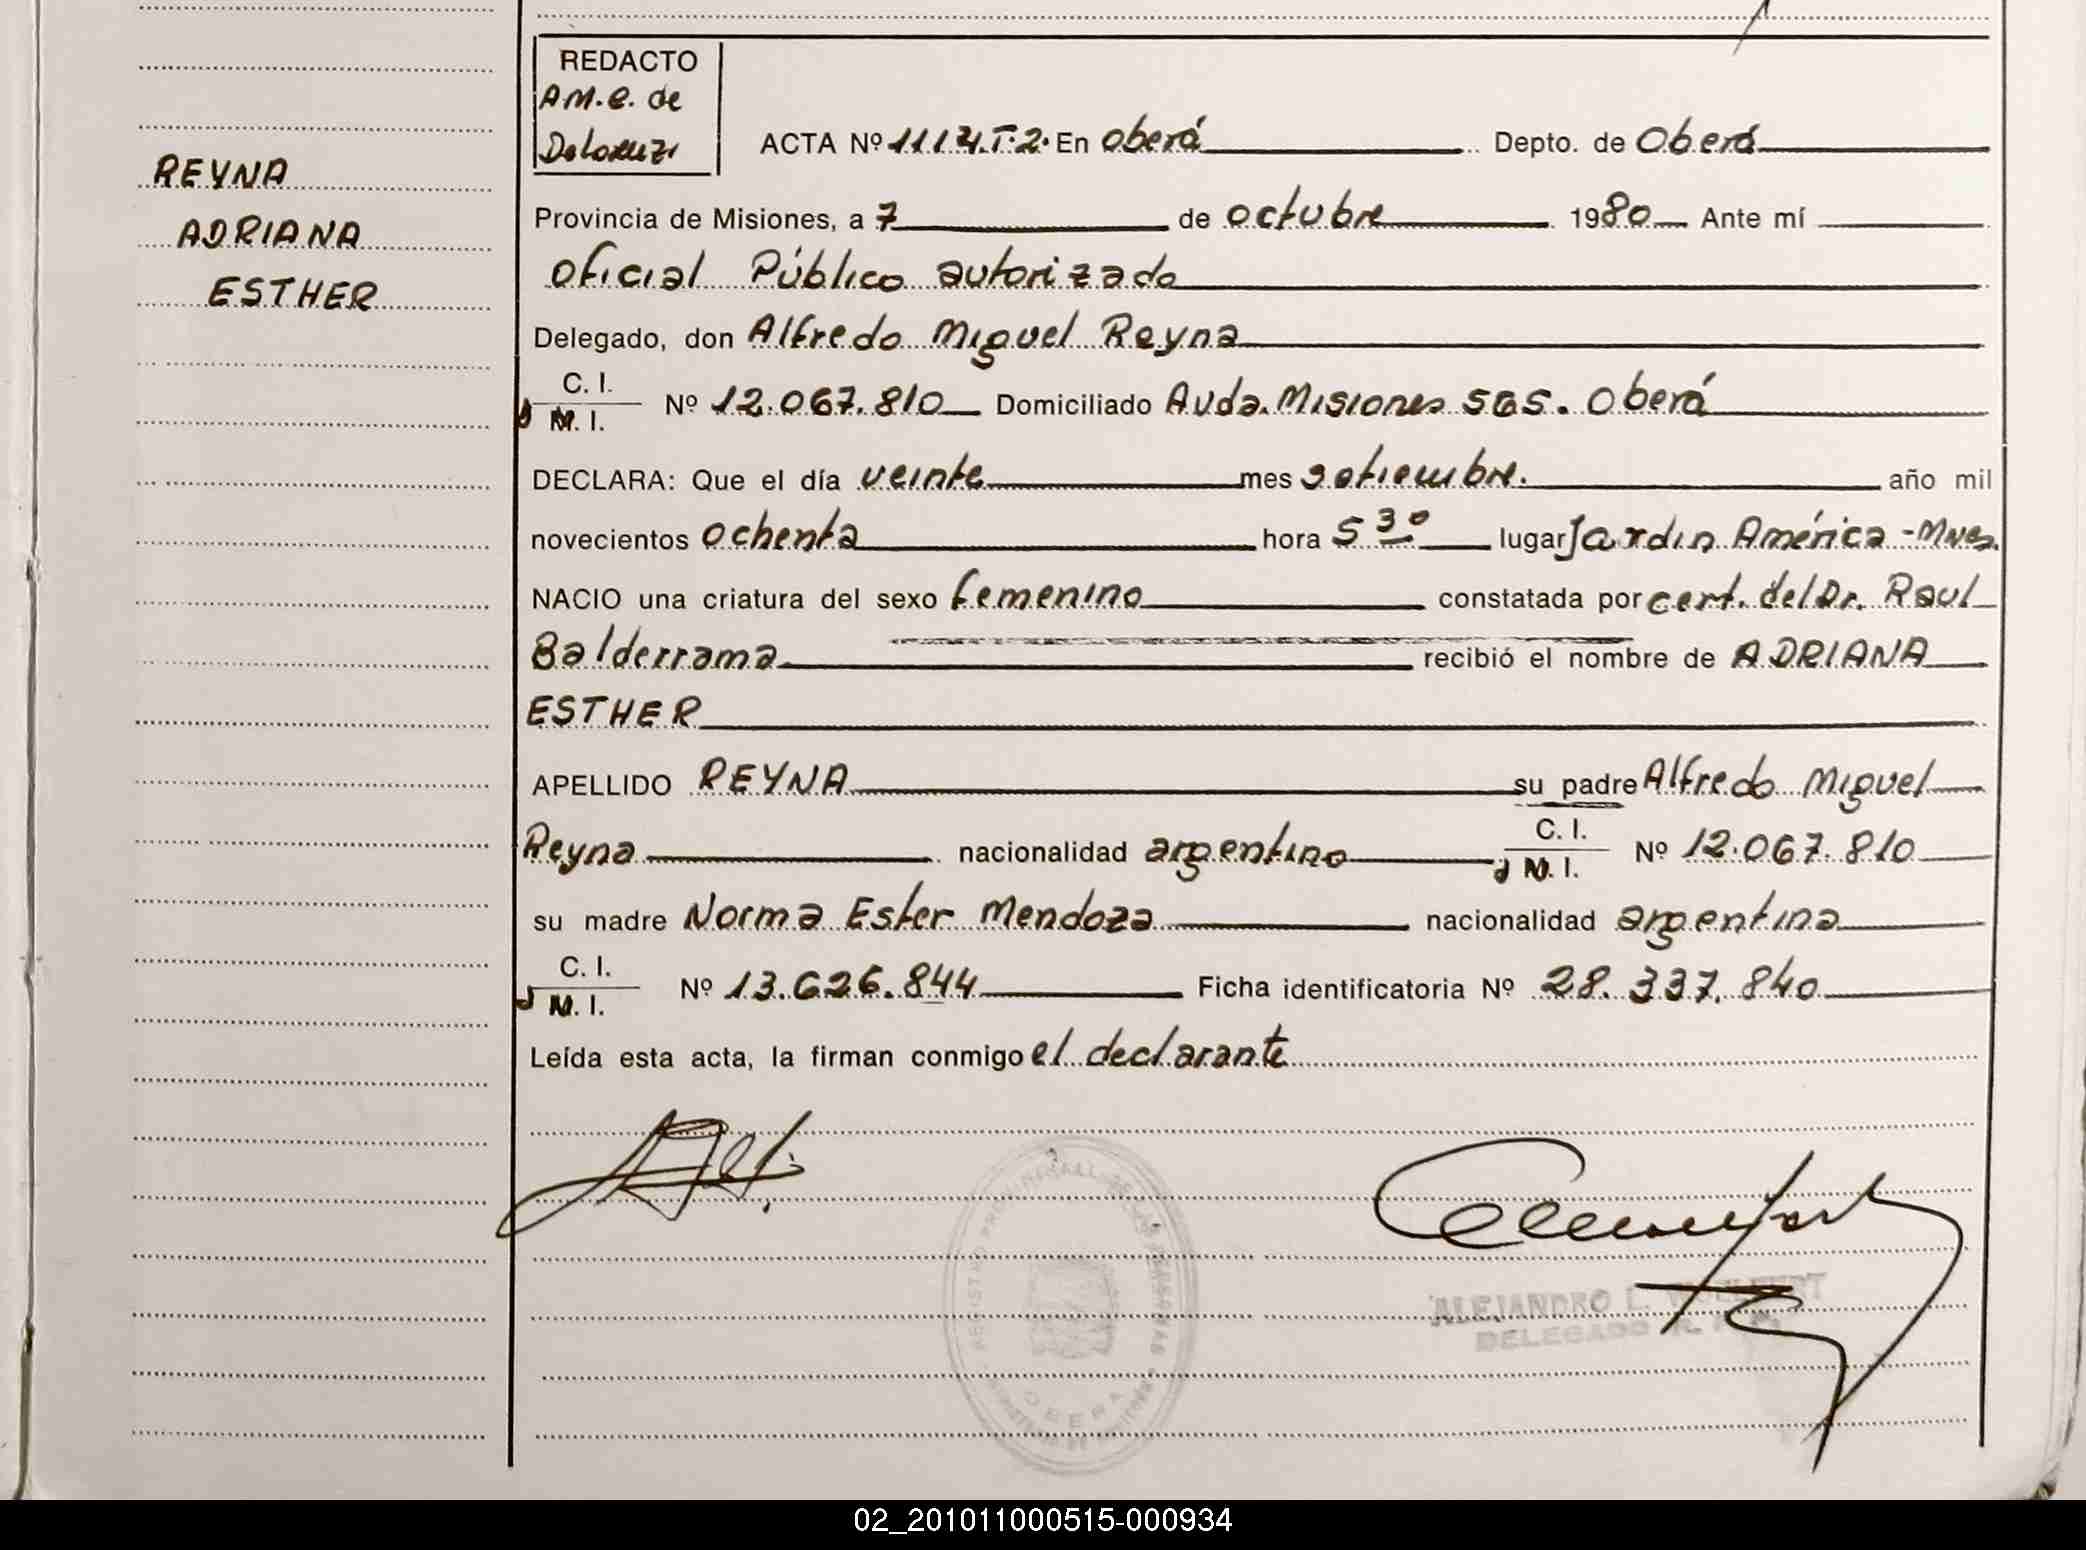 REDACTO
A.M.e. de
ACTA Nº 1114.T.2. En Oberá Depto. de Oberá
REYNA
ADRIANA
ESTHER
Provincia de Misiones, a 7 de octubre 1980 Ante mí
Oficial Público autorizado
Delegado, don Alfredo Miguel Reyna
C. I.
M. I.
Nº 12.067.810 Domiciliado Avda. Misiones 565. Oberá
DECLARA: Que el día veinte mes setiembre. año mil
novecientos ochenta hora 5 30 lugar Jardín América - Mnes.
NACIO una criatura del sexo femenino constatada por cert. del Dr. Raul
Balderrama recibió el nombre de ADRIANA
ESTHER
APELLIDO REYNA su padre Alfredo Miguel
Reyna nacionalidad argentino C. I. M. I. Nº 12.067.810
su madre Norma Ester Mendoza nacionalidad argentina
C. I.
M. I.
Nº 13.626.844 Ficha identificatoria Nº 28.337.840
Leída esta acta, la firman conmigo el declarante
ALEJANDRO L.
DELEGADO
OBERA
02_201011000515-000934